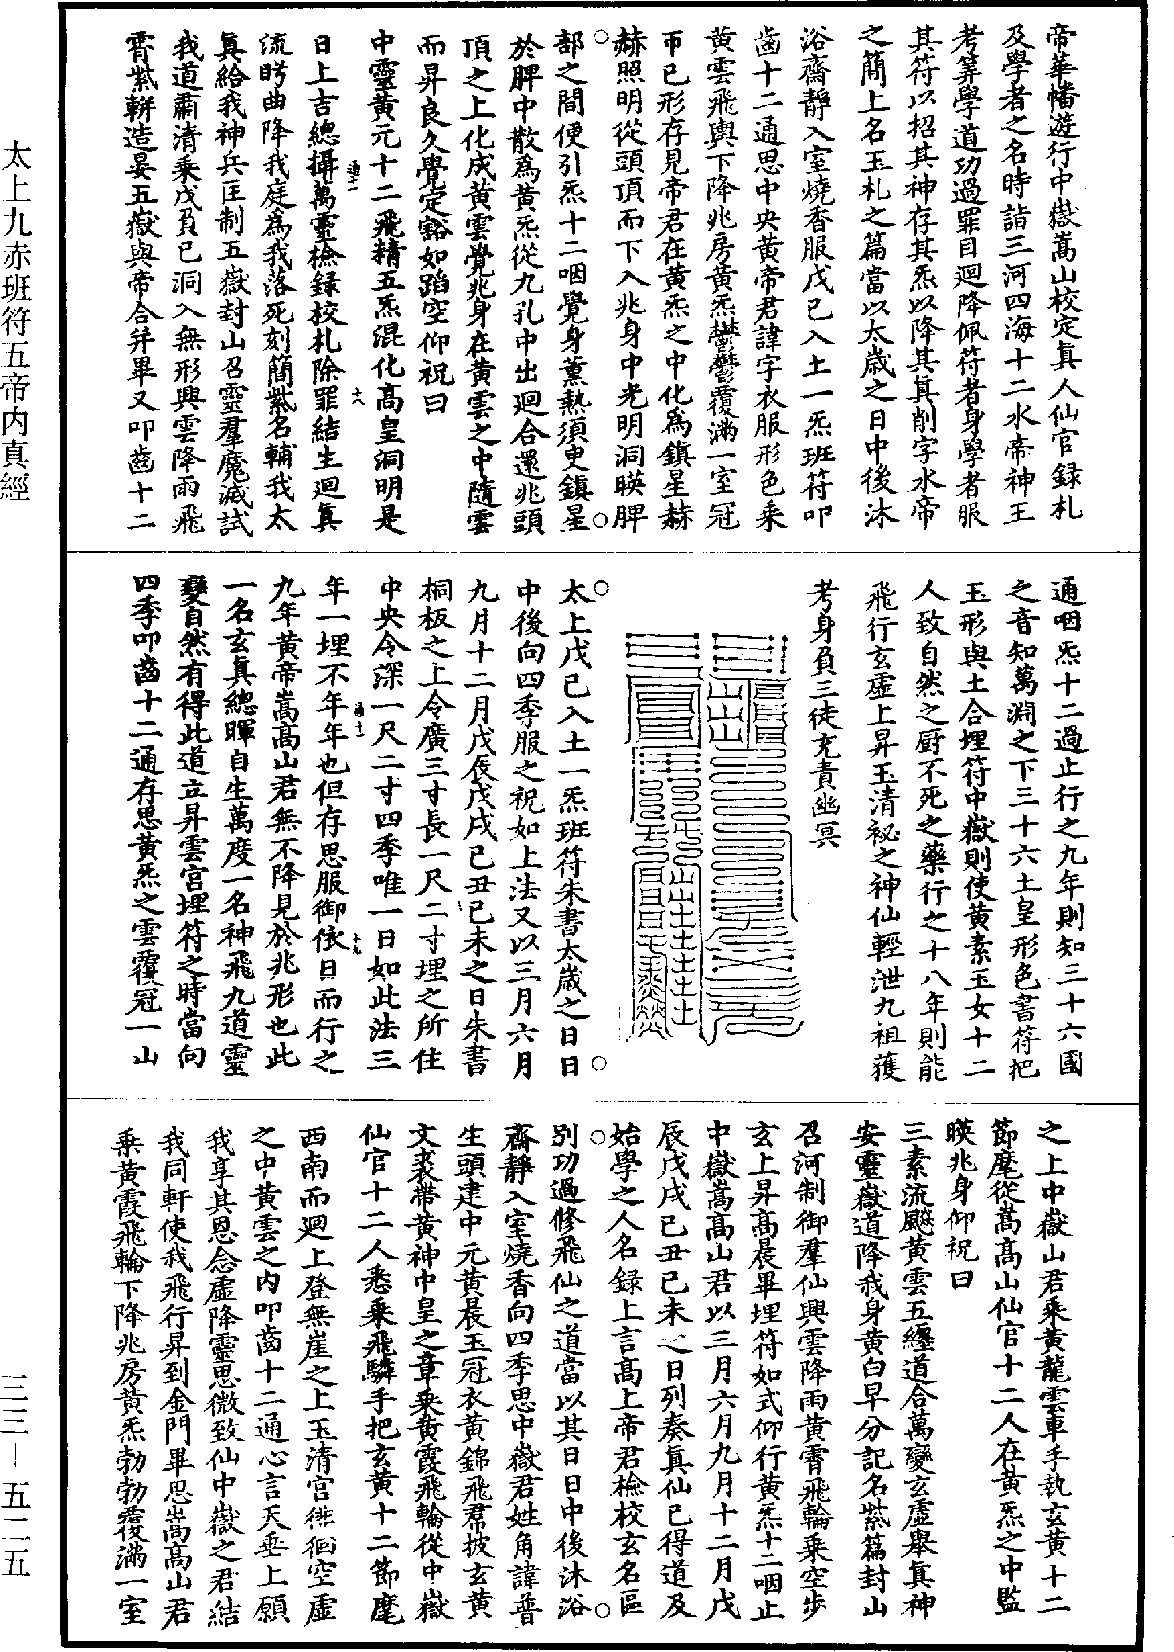 帝華幡遊行中嶽嵩山校定真人仙官録札
及學者之名時詣三河四海十二水帝神王
考筭學道功過罪目迴降佩符者身學者服
其符以招其神存其炁以降其真削字水帝
之簡上名玉札之篇當以太歲之日中後沐
浴齋靜入室燒香服戊己入土一炁班符叩
齒十二通思中央黃帝君諱字衣服形色乘
黃雲飛輿下降兆房黃炁鬱鬱覆滿一室冠
帀已形存見帝君在黃炁之中化為鎮星赫
赫照明從頭頂而下入兆身中光明洞暎脾
部之間便引炁十二咽覺身薰熱須臾鎮星
於脾中散為黃炁從九孔中出迴合還兆頭
頂之上化成黃雲覺兆身在黃雲之中隨雲
而昇良久覺定豁如蹈空仰祝曰
中靈黃元十二飛精五炁混化高皇洞明是
日上吉總攝萬靈檢録校札除罪結生迴真
流眄曲降我庭為我落死刻簡紫名輔我太
真給我神兵匡制五嶽封山召靈羣魔滅試
我道肅清乘戊負己洞入無形興雲降雨飛
霄紫軿造晏五嶽與帝合并畢又叩齒十二
通咽炁十二過止行之九年則知三十六國
之音知萬淵之下三十六土皇形色書符把
玉形與土合埋符中嶽則使黃素玉女十二
人致自然之厨不死之藥行之十八年則能
飛行玄虛上昇玉清祕之神仙輕泄九祖獲
考身負三徒充責幽冥
太上戊己入土一炁班符朱書太歲之日日
中後向四季服之祝如上法又以三月六月
九月十二月戊辰戊戌己丑己未之日朱書
桐板之上令廣三寸長一尺二寸埋之所住
中央令深一尺二寸四季唯一日如此法三
年一埋不年年也但存思服御依日而行之
九年黃帝嵩高山君無不降見於兆形也此
一名玄真總暉自生萬度一名神飛九道靈
變自然有得此道立昇雲宮埋符之時當向
四季叩齒十二通存思黃炁之雲覆冠一山
之上中嶽山君乘黃龍雲車手執玄黃十二
節麾從嵩高山仙官十二人在黃炁之中監
暎兆身仰祝曰
三素流飈黃雲五纏道合萬變玄虛舉真神
安靈嶽道降我身黃白早分記名紫篇封山
召河制御羣仙興雲降雨黃霄飛輪乘空步
玄上昇高晨畢埋符如式仰行黃炁十二咽止
中嶽嵩高山君以三月六月九月十二月戊
辰戊戌己丑己未之日列奏真仙已得道及
始學之人名録上言高上帝君檢校玄名區
別功過修飛仙之道當以其日日中後沐浴
齋靜入室燒香向四季思中嶽君姓角諱普
生頭建中元黃晨玉冠衣黃錦飛帬披玄黃
文裘帶黃神中皇之章乘黃霞飛輪從中嶽
仙官十二人悉乘飛驎手把玄黃十二節麾
西南而迴上登無崖之上玉清宮徘徊空虛
之中黃雲之內叩齒十二通心言天垂上願
我享其恩念虛降靈思微致仙中嶽之君結
我同軒使我飛行昇到金門畢思嵩高山君
乘黃霞飛輪下降兆房黃炁勃勃覆滿一室
太上九赤班符五帝内真經
三三－五二五